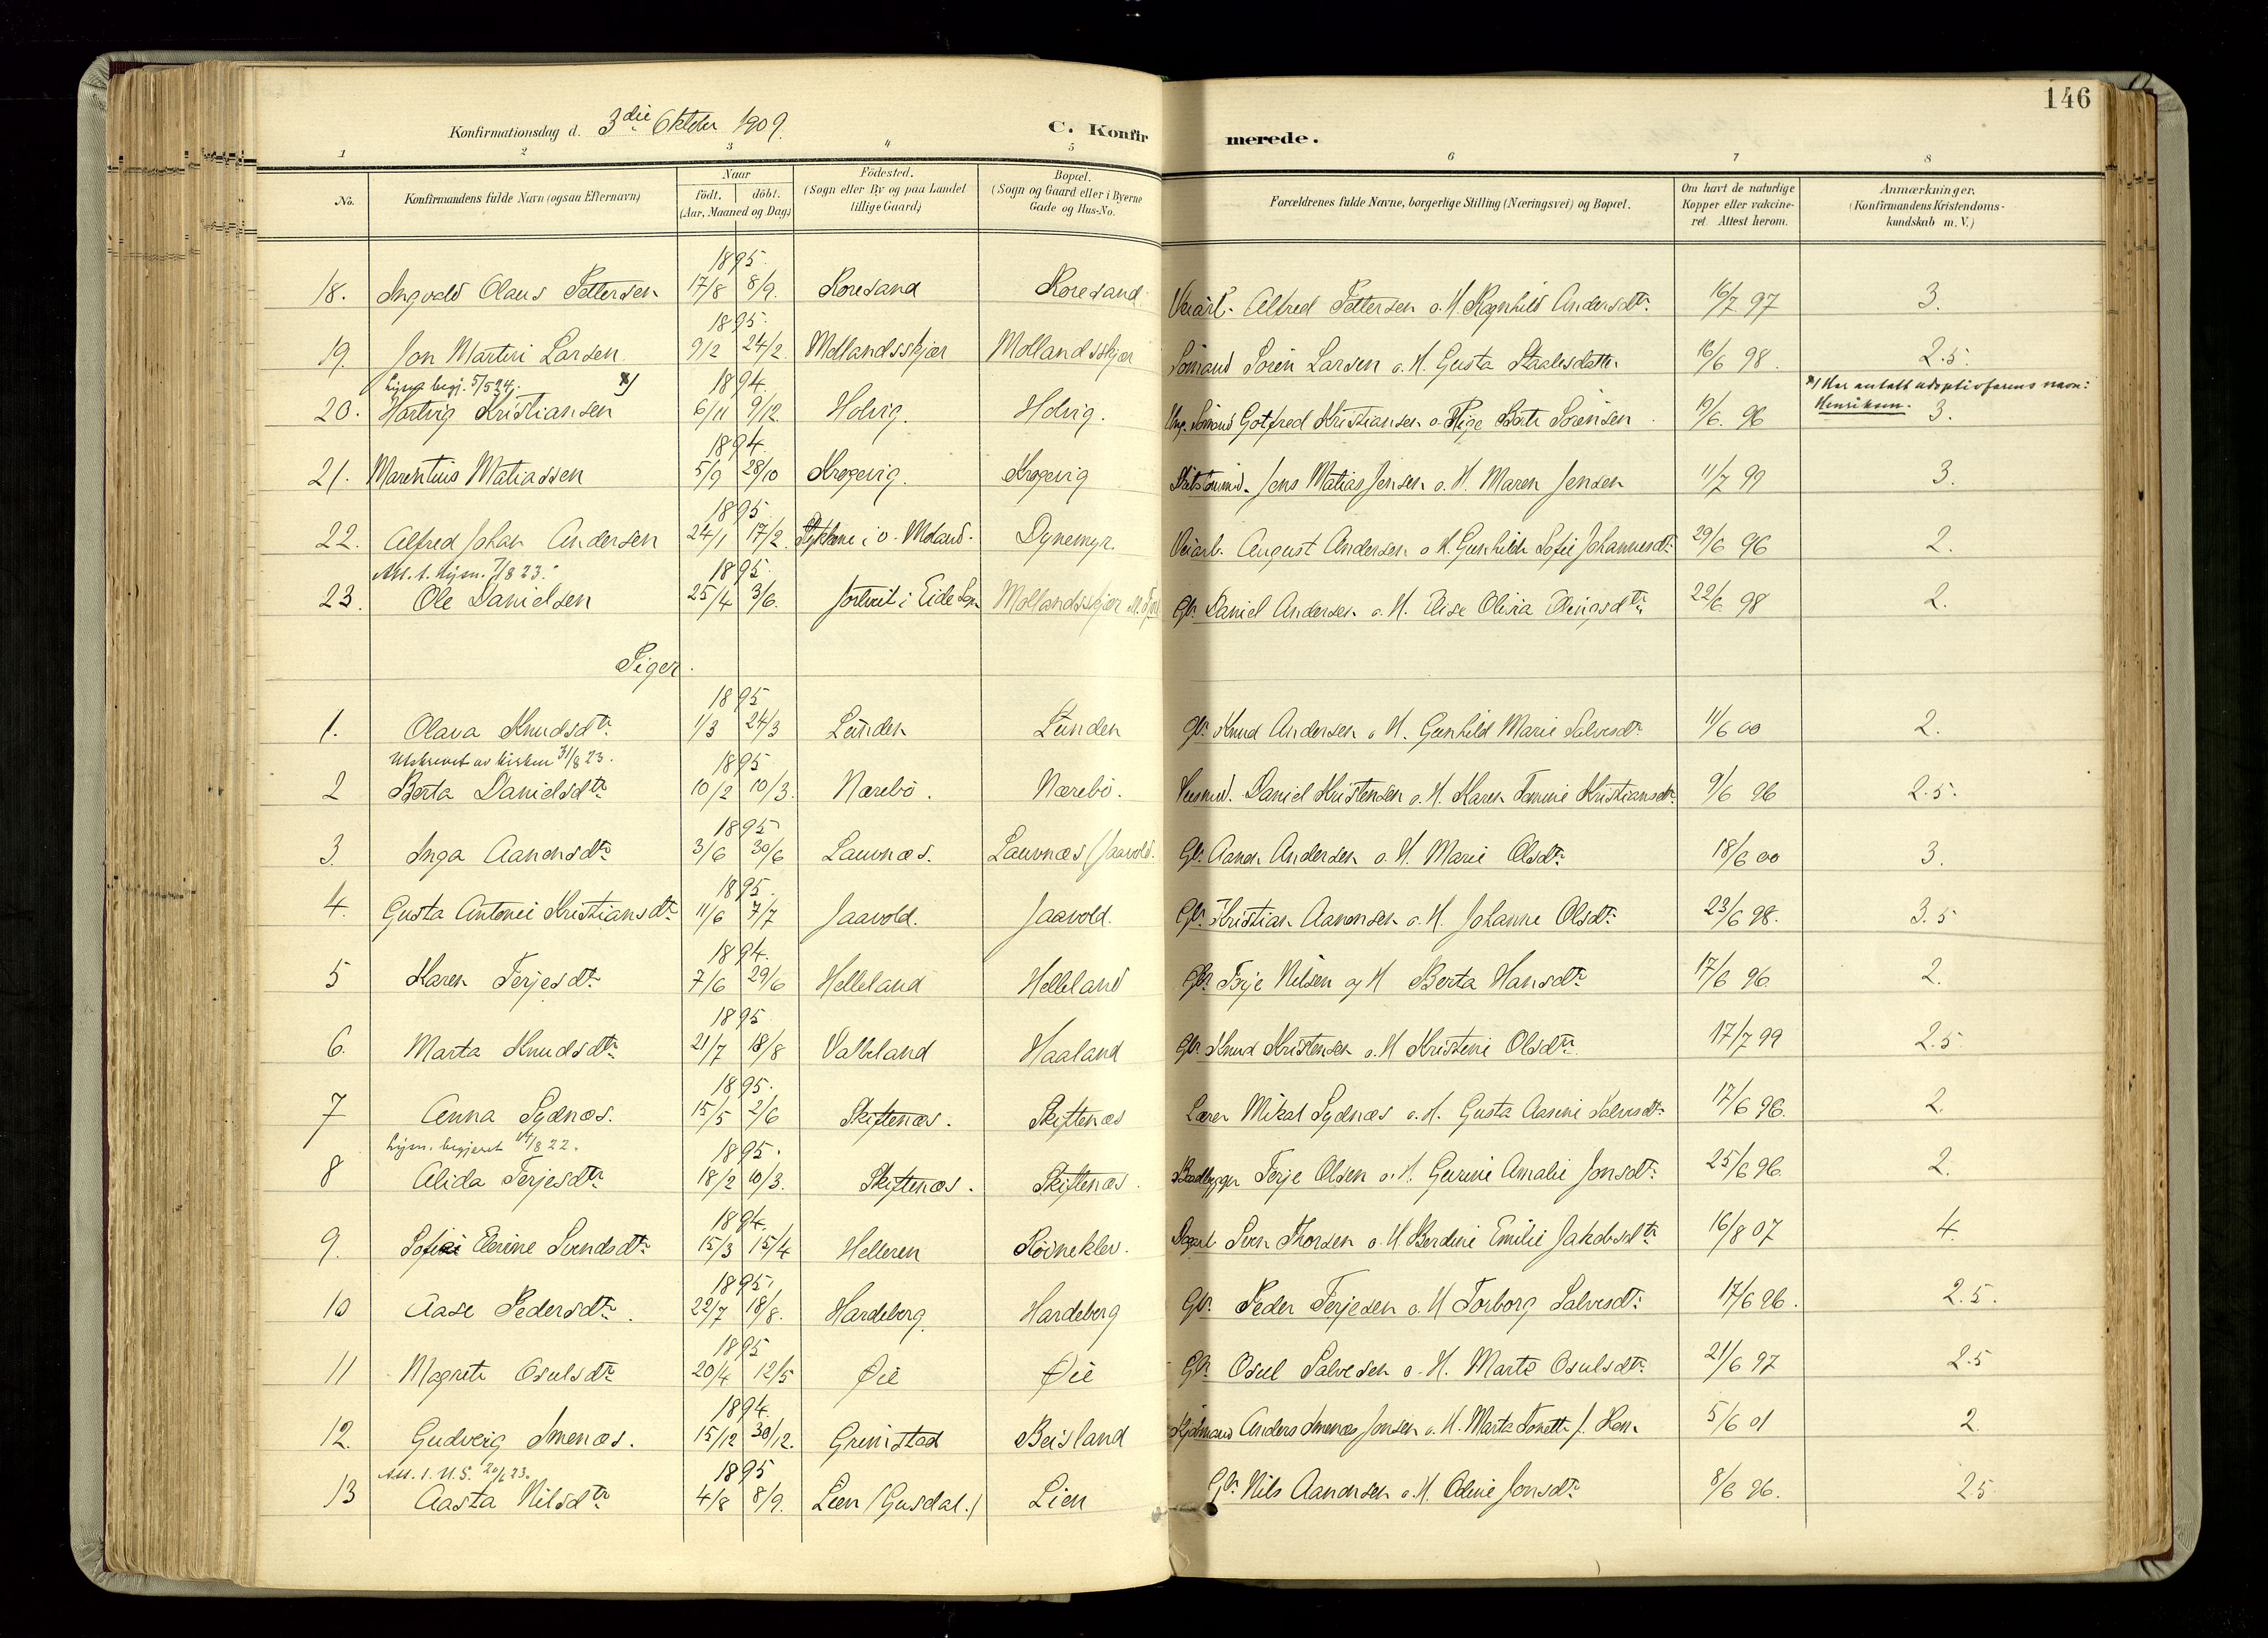 146
Konfirmationsdag d. 3die Oktober 1909.
C. Konfirmerede.
1 2 3 4 5 6 7 8
No. Konfirmandens fulde Navn (ogsaa Efternavn) Naar födt. döbt. (Aar, Maaned og Dag) Födested. (Sogn eller By og paa Landet tillige Gaard) Bopæl. (Sogn og Gaard eller i Byerne Gade og Hus-No. Forældrenes fulde Navne, borgerlige Stilling (Næringsvei) og Bopæl. Om havt de naturlige Kopper eller vakcineret Attest herom. Anmærkninger. (Konfirmandens Kristendomskundskab m. V.)
1895.
18. Ingvald Olaus Pettersen 17/8 8/9. Roresand Roresand Veiarb. Alfred Pettersen o. H. Ragnhild Andersdtr. 16/7 97 3.
1895.
19. Jon Martin Larsen 9/2 24/2. Mollandsskjær Mollandsskjær Sömand Sören Larsen o. H. Gusta Staalesdatter 16/6 98. 2.5.
Lysn. begj. 5/5 24. x) 1894. x) Har antatt adoptivfarens navn:
20. Hartvig Kristiansen 6/11 9/12. Holvig. Holvig. Ung. Sömand Gotfred Kristiansen o. Pige Berte Sörensen 19/6. 96 Henriksen. 3.
1894.
21. Marentius Matiassen 5/9 28/10 Krogevig. Krogevig Jens Matias Jensen o. H. Maren Jensen 11/7 99 3.
1895.
22. Alfred Johan Andersen 24/1 17/2. i ö. Moland. Dynemyr. Veiarb. August Andersen o. H. Gunhilde Sofie Johannesdtr. 29/6 96 2.
Att. t. lysn. 7/8 23. 1895.
23. Ole Danielsen 25/4 3/6. Jortveit i Eide Sogn Mollandsskjær Gbr. Daniel Andersen o. H. Else Olivia Ellingsdtr. 22/6 98 2.
Piger.
1895
1. Olava Knudsdtr. 1/3 24/3 Lunden Lunden Gbr. Knud Andersen o H. Gunhild Marie Salvesdtr 11/6 00 2.
Utskrevet av kirken 31/8 23. 1895
2 Berta Danielsdtr 10/2 10/3. Nærebö. Nærebö. Daniel Kristensen o. H. Karen Tomine Kristiansdtr. 9/6 96 2.5.
1895
3. Inga Aanonsdtr 3/6 30/6 Lauvnæs. Lauvnæs (Jaavold. Gbr. Aanon Andersen o. H. Marie Olsdtr. 18/6 00 3.
1895.
4. Gusta Antonie Kristiansdtr 11/6 7/7 Jaavold. Jaavold. Gbr. Kristian Aanonsen o. H. Johanne Olsdtr. 23/6 98. 3.5
1894.
5 Karen Terjesdtr. 7/6 29/6 Helleland Helleland Gbr. Terje Nilsen og H Berta Hansdtr. 17/6 96. 2.
1895
6. Marta Knudsdtr. 21/7 18/8 Valleland Haaland Gbr. Knud Kristensen o. H Kristine Olsdtr. 17/7 99 2.5
1895.
7 Anna Sydnæs. 15/5 2/6 Skiftenæs. Skiftenæs Lærer Mikal Sydnæs o. H. Gusta Aasine Salvesdtr. 17/6 96. 2.
Lysn. begjæret 14/8 22. 1895.
8 Alida Terjesdtr 18/2 10/3. Skiftenæs. Skiftenæs. Baadbygger Terje Olsen o. H. Gurine Amalie Jonsdtr. 25/6 96 2.
1894.
9. Sofie Elerine Svendsdtr. 15/3 15/4 Helleren Röineklev. Dagarb. Sven Thorsen o. H Berdine Emilie Jakobsdtr 16/8 07 4.
1895.
10 Aase Pedersdtr. 22/7 18/8. Hardeberg. Hardeberg Gbr. Peder Terjesen o. H Torborg Salvesdtr. 17/6 96. 2.5.
1895
11 Magrete Osulsdtr 20/4 12/5 Øie Øie Gbr. Osul Salvesen o. H. Marte Osulsdtr. 21/6 97 2.5
1894.
12. Gudveig Smenæs. 15/12 30/12. Grimstad Beisland Anders Smenæs Jonsen o. H. Marta Tonette f. 5/6 01 2.
Att. t. U.S. 20/6 23. 1895
13 Aasta Nilsdtr 4/8 8/9. Lien (Gusdal.) Lien Gbr. Nils Aanonsen o. H. Oline Jonsdtr. 8/6 96. 2.5